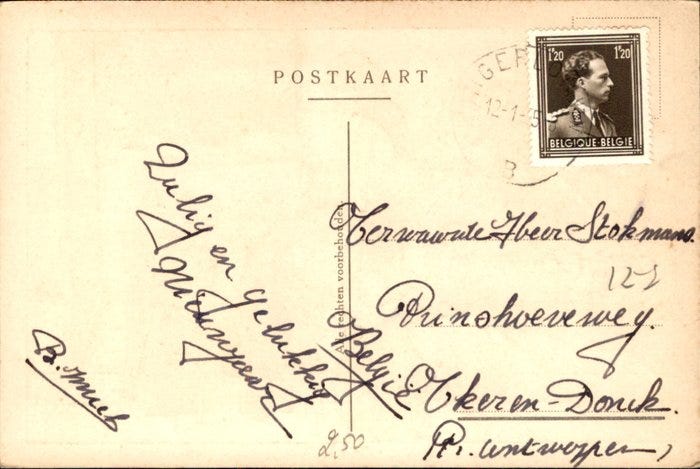 POSTKAART
1F20 1F20
BELGIQUE-BELGIË
12-1-5
B
Zalig en gelukkig
Nieuwjaar
rechten voorbehouden
Heer Stokmans
122
Prinshoeveweg.
België
Ekeren-Donck.
Pr. Antwerpen
2,50
B.